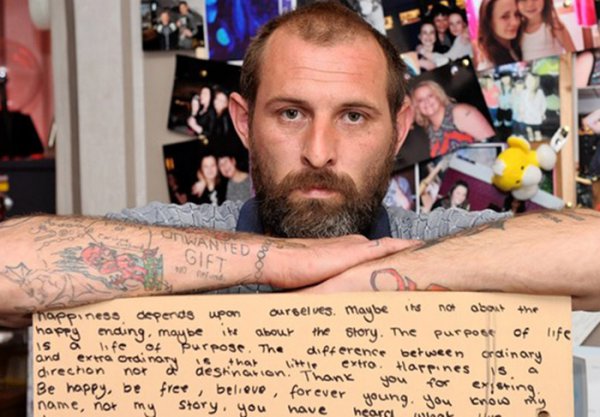 UNWANTED
GIFT
NO Refunds
happiness depends upon ourselves. Maybe its not about the
happy ending, maybe its about the story. The purpose of life
is a life of purpose. The difference between ordinary
and extraordinary is that little extra. Happines is a
direction not a destination. Thank you for existing.
Be happy, be free, believe, forever young. You know my
name, not my story. You have heard what